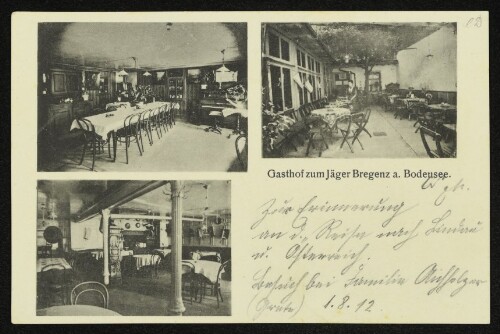 Gasthof zum Jäger Bregenz a. Bodensee.
Zur Erinnerung
an d. Reise nach Lindau
u. Österreich.
Besuch bei Familie Aichholzer
(Grete) 1.8.12